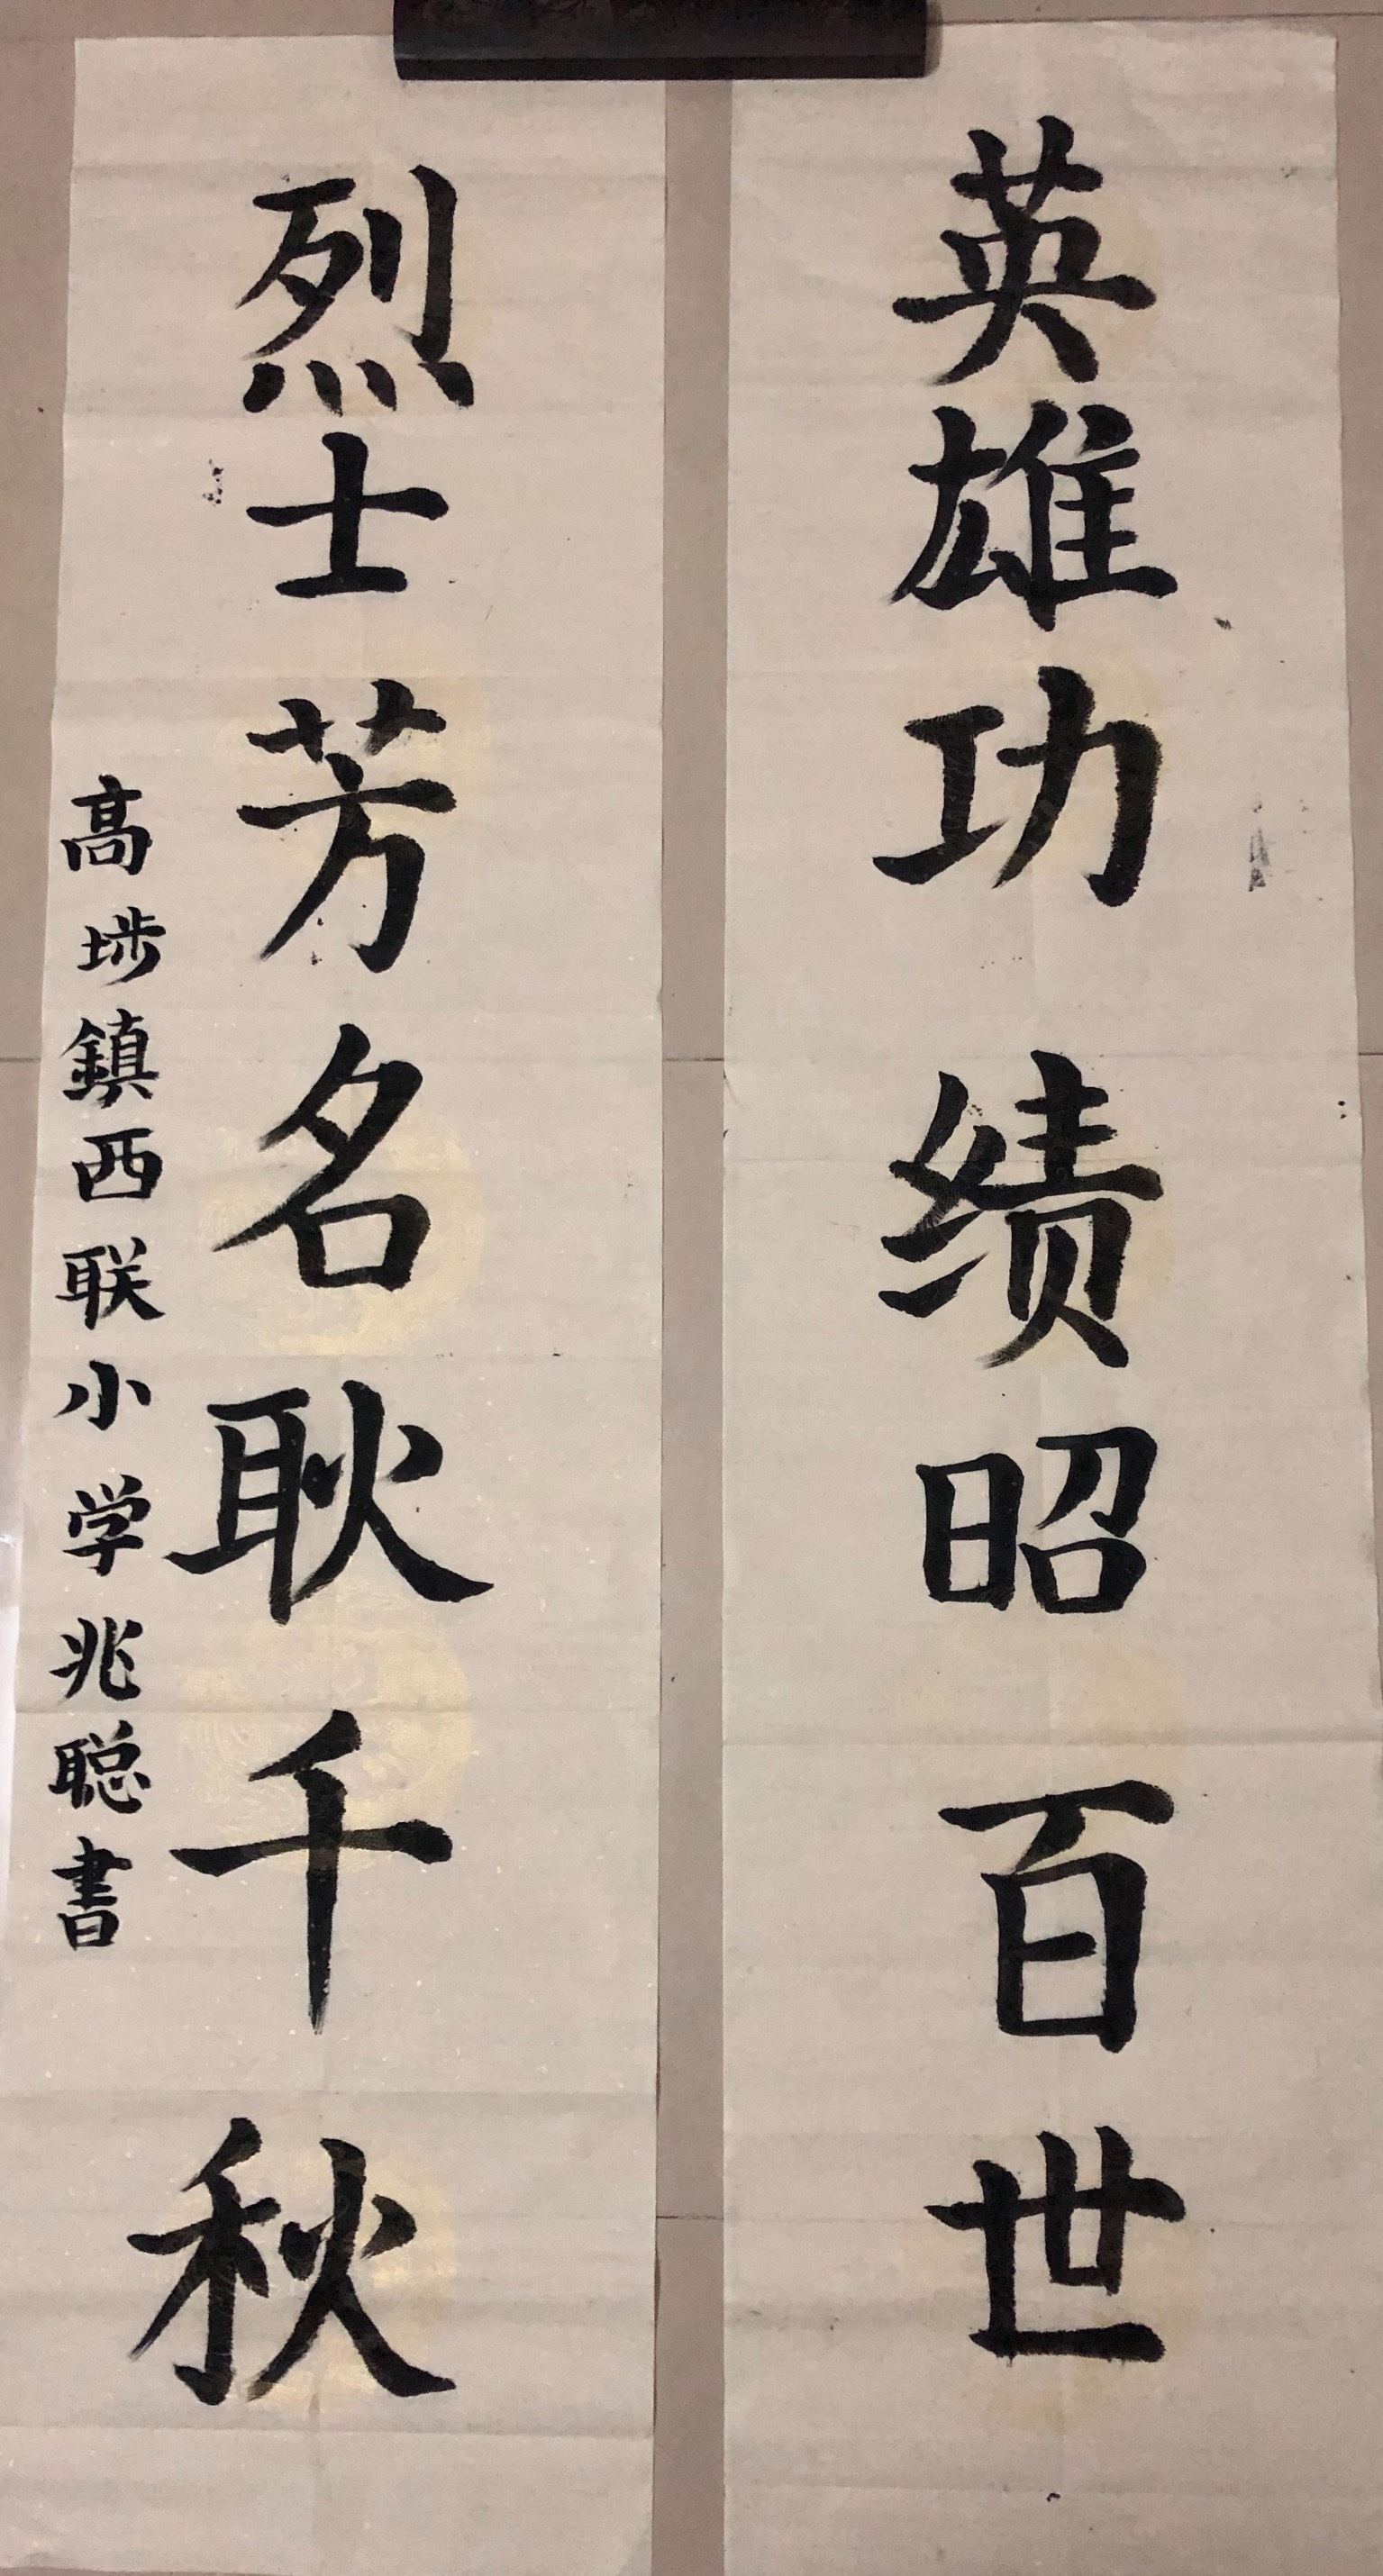 英雄功绩昭百世
烈士芳名耿千秋
高埗鎮西联小学兆聪書